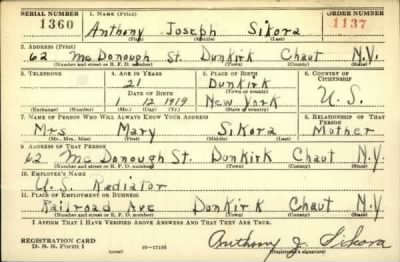 SERIAL NUMBER 1. NAME (Print) ORDER NUMBER
1360 Anthony Joseph Sikora 1137
(First) (Middle) (Last)
2. ADDRESS (Print)
62 McDonough St. Dunkirk Chaut N.Y.
(Number and street or R. F. D. number) (Town) (County) (State)
3. TELEPHONE 4. AGE IN YEARS 5. PLACE OF BIRTH 6. COUNTRY OF CITIZENSHIP
21 Dunkirk
DATE OF BIRTH (Town or county)
1 12 1919 New York U.S.
(Exchange) (Number) (Mo.) (Day) (Yr.) (State or country)
7. NAME OF PERSON WHO WILL ALWAYS KNOW YOUR ADDRESS 8. RELATIONSHIP OF THAT PERSON
Mrs. Mary Sikora Mother
(Mr., Mrs., Miss) (First) (Middle) (Last)
9. ADDRESS OF THAT PERSON
62 McDonough St. Dunkirk Chaut N.Y.
(Number and street or R. F. D. number) (Town) (County) (State)
10. EMPLOYER'S NAME
U.S. Radiator
11. PLACE OF EMPLOYMENT OR BUSINESS
Railroad Ave Dunkirk Chaut N.Y.
(Number and street or R. F. D. number) (Town) (County) (State)
I AFFIRM THAT I HAVE VERIFIED ABOVE ANSWERS AND THAT THEY ARE TRUE.
REGISTRATION CARD
D. S. S. Form 1 (over) 16—17105 Anthony J. Sikora
(Registrant's signature)